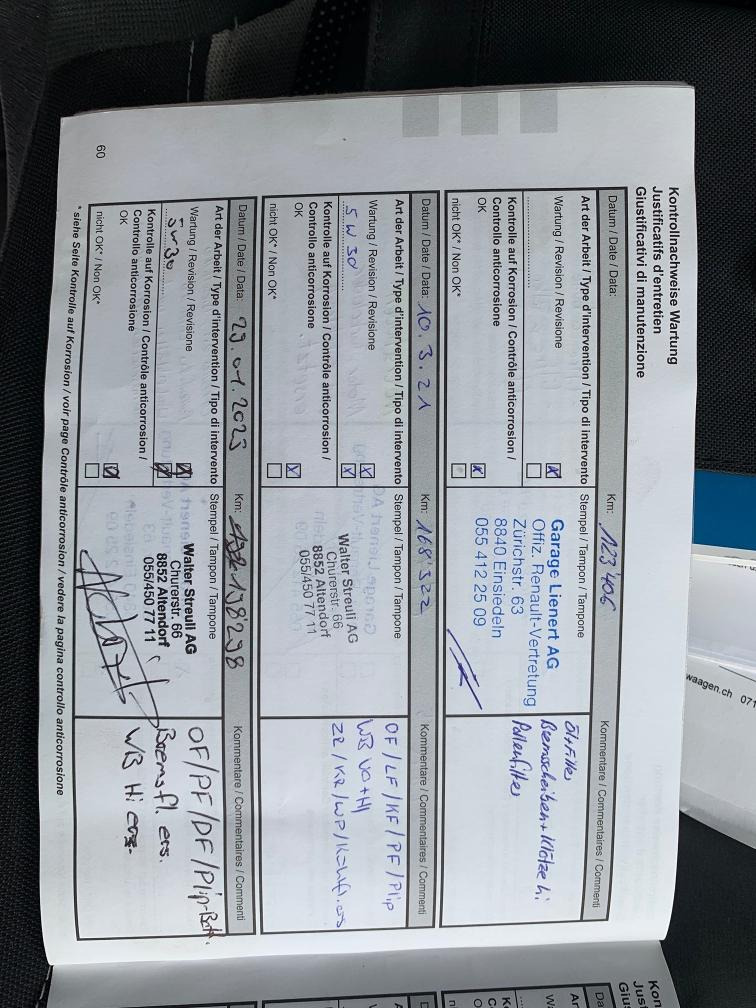 Kontrollnachweise Wartung
Justificatifs d'entretien
Giustificativi di manutenzione
Datum / Date / Data:
Km: 123'406
Art der Arbeit / Type d'intervention / Tipo di intervento
Stempel / Tampon / Tampone
Kommentare / Commentaires / Commenti
Wartung / Revision / Revisione
Kontrolle auf Korrosion / Contrôle anticorrosion /
Controllo anticorrosione
OK
nicht OK* / Non OK*
Garage Lienert AG
Offiz. Renault-Vertretung
Zürichstr. 63
8840 Einsiedeln
055 412 25 09
Ölfilter
Bremscheiben + Klötze hi.
Pollenfilter
Datum / Date / Data: 10.3.21
Km: 168'322
Art der Arbeit / Type d'intervention / Tipo di intervento
Stempel / Tampon / Tampone
Kommentare / Commentaires / Commenti
Wartung / Revision / Revisione
5W30
Kontrolle auf Korrosion / Contrôle anticorrosion /
Controllo anticorrosione
OK
nicht OK* / Non OK*
Walter Streuli AG
Churerstr. 66
8852 Altendorf
055/450 77 11
OF / LF / KF / PF / Plip
WB VO + HI
ZR / KR / WP / Kühlfl. ers
Datum / Date / Data: 23.01.2023
Km: 198'298
Art der Arbeit / Type d'intervention / Tipo di intervento
Stempel / Tampon / Tampone
Kommentare / Commentaires / Commenti
Wartung / Revision / Revisione
5W30
Kontrolle auf Korrosion / Contrôle anticorrosion /
Controllo anticorrosione
OK
nicht OK* / Non OK*
Walter Streuli AG
Churerstr. 66
8852 Altendorf
055/450 77 11
OF / PF / DF / Plip-Batt.
Bremsfl. ers.
WB Hi ers.
* siehe Seite Kontrolle auf Korrosion / voir page Contrôle anticorrosion / vedere la pagina controllo anticorrosione
60
waagen.ch 071